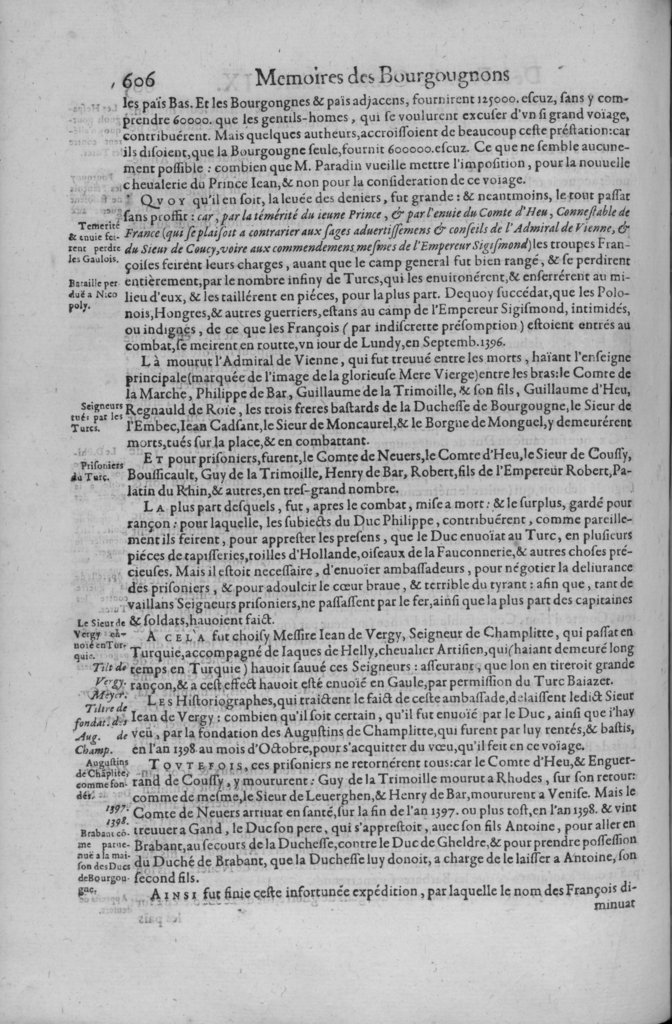 606 Memoires des Bourgougnons
les païs Bas. Et les Bourgongnes & païs adjacens, fournirent 125000. escuz, sans y com-
prendre 60000. que les gentils-homes, qui se voulurent excuser d'vn si grand voiage,
contribuérent. Mais quelques autheurs, accroissoient de beaucoup ceste préstation: car
ils disoient, que la Bourgougne seule, fournit 600000. escuz. Ce que ne semble aucune-
ment possible : combien que M. Paradin vueille mettre l'imposition, pour la nouuelle
cheualerie du Prince Iean, & non pour la consideration de ce voiage.
QVOY qu'il en soit, la leuée des deniers, fut grande : & neantmoins, le tout passat
sans proffit : car, par la témérité du ieune Prince, & par l'enuie du Comte d'Heu, Connestable de
France (qui se plaisoit a contrarier aux sages aduertissemens & conseils de l'Admiral de Vienne, &
du Sieur de Coucy, voire aux commendemens mesmes de l'Empereur Sigismond) les troupes Fran-
çoises feirent leurs charges, auant que le camp general fut bien rangé, & se perdirent
entiérement, par le nombre infiny de Turcs, qui les enuironérent, & enserrérent au mi-
lieu d'eux, & les taillérent en piéces, pour la plus part. Dequoy succédat, que les Polo-
nois, Hongres, & autres guerriers, estans au camp de l'Empereur Sigismond, intimidés,
ou indignés, de ce que les François (par indiscrette présomption) estoient entrés au
combat, se meirent en routte, vn iour de Lundy, en Septemb. 1396.
Temerité
& enuie fei-
rent perdre
les Gaulois.
Bataille per
duë a Nico
poly.
LÀ mourut l'Admiral de Vienne, qui fut treuué entre les morts, haïant l'enseigne
principale (marquée de l'image de la glorieuse Mere Vierge) entre les bras: le Comte de
la Marche, Philippe de Bar, Guillaume de la Trimoille, & son fils, Guillaume d'Heu,
Regnauld de Roie, les trois freres bastards de la Duchesse de Bourgougne, le Sieur de
l'Embec, Iean Cadsant, le Sieur de Moncaurel, & le Borgne de Monguel, y demeurérent
morts, tués sur la place, & en combattant.
Seigneurs
tués par les
Turcs.
ET pour prisoniers, furent, le Comte de Neuers, le Comte d'Heu, le Sieur de Coussy,
Boussicault, Guy de la Trimoille, Henry de Bar, Robert, fils de l'Empereur Robert, Pa-
latin du Rhin, & autres, en tres-grand nombre.
Prisoniers
du Turc.
LA plus part desquels, fut, apres le combat, mise a mort : & le surplus, gardé pour
rançon : pour laquelle, les subiects du Duc Philippe, contribuérent, comme pareille-
ment ils feirent, pour apprester les presens, que le Duc enuoïat au Turc, en plusieurs
piéces de tapisseries, toilles d'Hollande, oiseaux de la Fauconnerie, & autres choses pré-
cieuses. Mais il estoit necessaire, d'enuoier ambassadeurs, pour négotier la deliurance
des prisoniers, & pour adoulcir le cœur braue, & terrible du tyrant : afin que, tant de
vaillans Seigneurs prisoniers, ne passassent par le fer, ainsi que la plus part des capitaines
& soldats, hauoient faict.
A CELA fut choisy Messire Iean de Vergy, Seigneur de Champlitte, qui passat en
Turquie, accompagné de Iaques de Helly, cheualier Artisien, qui (haiant demeuré long
temps en Turquie) hauoit sauué ces Seigneurs : asseurant, que lon en tireroit grande
rançon, & a cest effect hauoit esté enuoïé en Gaule, par permission du Turc Baiazet.
Le Sieur de
Vergy en-
uoié en Tur
quie.
Tilt de
Vergy.
Meyer.
LES Historiographes, qui traictent le faict de ceste ambassade, delaissent ledict Sieur
Iean de Vergy : combien qu'il soit certain, qu'il fut enuoïé par le Duc, ainsi que i'hay
veü, par la fondation des Augustins de Champlitte, qui furent par luy rentés, & bastis,
en l'an 1398. au mois d'Octobre, pour s'acquitter du vœu, qu'il feit en ce voiage.
Tiltre de
fondat. des
Aug. de
Champ.
TOVTEFOIS, ces prisoniers ne retornérent tous: car le Comte d'Heu, & Enguer-
rand de Coussy, y moururent : Guy de la Trimoille mourut a Rhodes, sur son retour:
comme de mesme, le Sieur de Leuerghen, & Henry de Bar, moururent a Venise. Mais le
Comte de Neuers arriuat en santé, sur la fin de l'an 1397. ou plus tost, en l'an 1398. & vint
treuuer a Gand, le Duc son pere, qui s'apprestoit, auec son fils Antoine, pour aller en
Brabant, au secours de la Duchesse, contre le Duc de Gheldre, & pour prendre possession
du Duché de Brabant, que la Duchesse luy donoit, a charge de le laisser a Antoine, son
second fils.
Augustins
de Chāplite,
comme fon-
dés.
1397.
1398.
Brabant cō-
me parue-
nuë a la mai-
son des Ducs
de Bourgou-
gne.
AINSI fut finie ceste infortunée expédition, par laquelle le nom des François di-
minuat